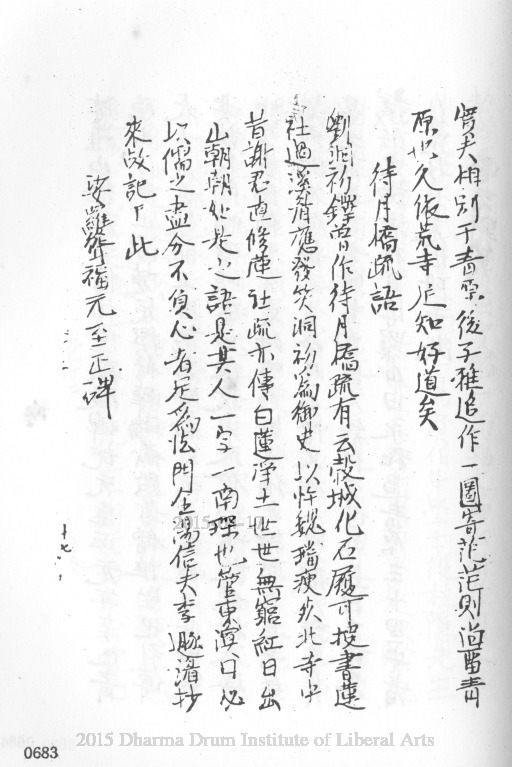 賢夫相別于青原後子雅追作一圖寄茫茫則尚留青
原也久依荒寺足知好道矣
待月橋疏語
劉洞初鐸曾作待月橋疏有云穀城化石履可授書蓮
社過溪有應發笑洞初為御史以忤魏璫瘦死北寺中
昔謝君直修蓮社疏亦傳白蓮淨土世世無窮紅日出
山朝朝如是之語是其人一字一南琛也管東溟曰必
以儒之盡分不負心者足為法門金湯信夫李
來故記于此
娑羅華福元至正碑
十七
2015 Dharma Drum Institute of Liberal Arts
0683